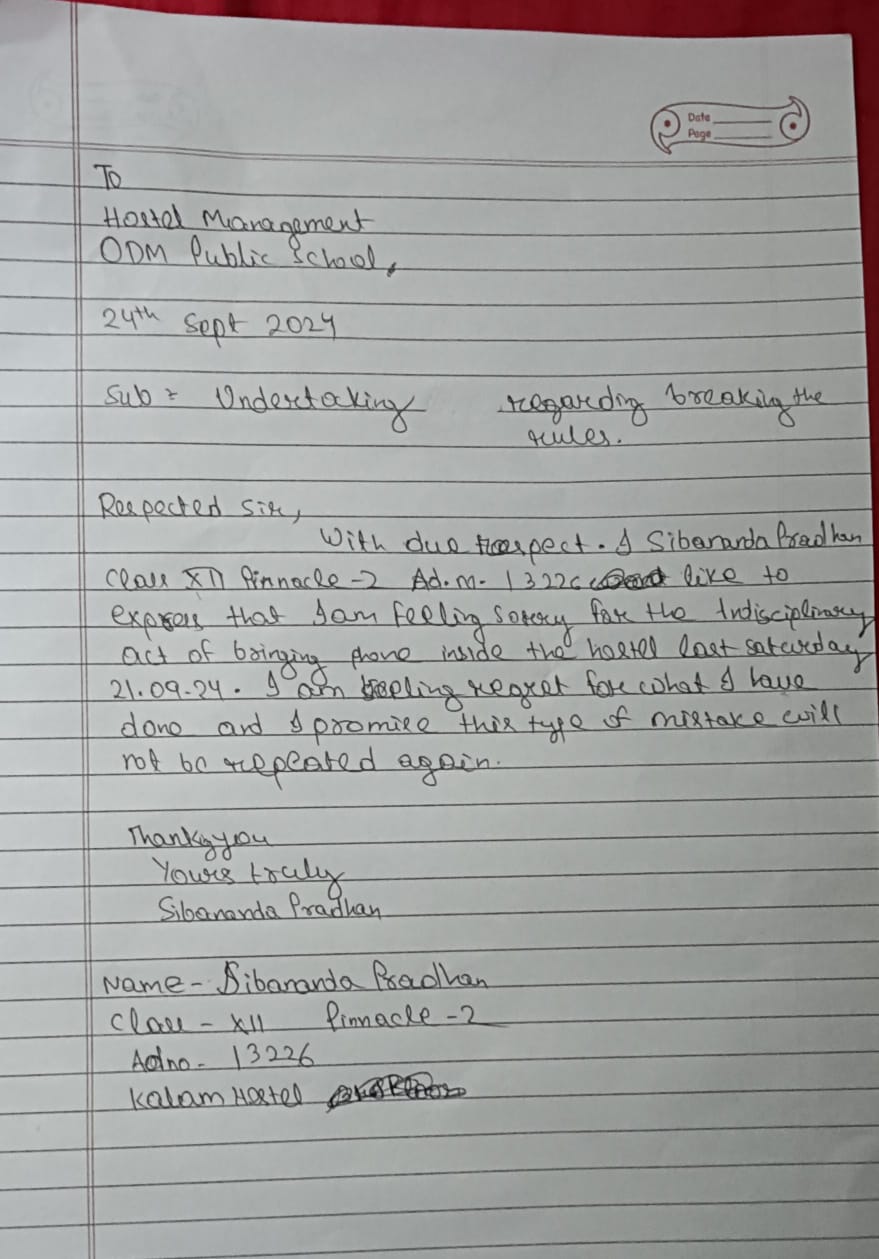 Date
Page
To
Hostel Management
ODM Public School,
24th Sept 2024
Sub = Undertaking regarding breaking the
rules.
Respected Sir,
With due respect. I Sibananda Pradhan
Class XII Pinnacle-2 Ad.m. 13226 like to
express that I am feeling sorry for the Indisciplinary
act of bringing phone inside the hostel last saturday
21.09.24. I am feeling regret for what I have
done and I promise this type of mistake will
not be repeated again.
Thankyou
Yours truly
Sibananda Pradhan
Name - Sibananda Pradhan
Class - XII Pinnacle -2
Adno - 13226
Kalam Hostel